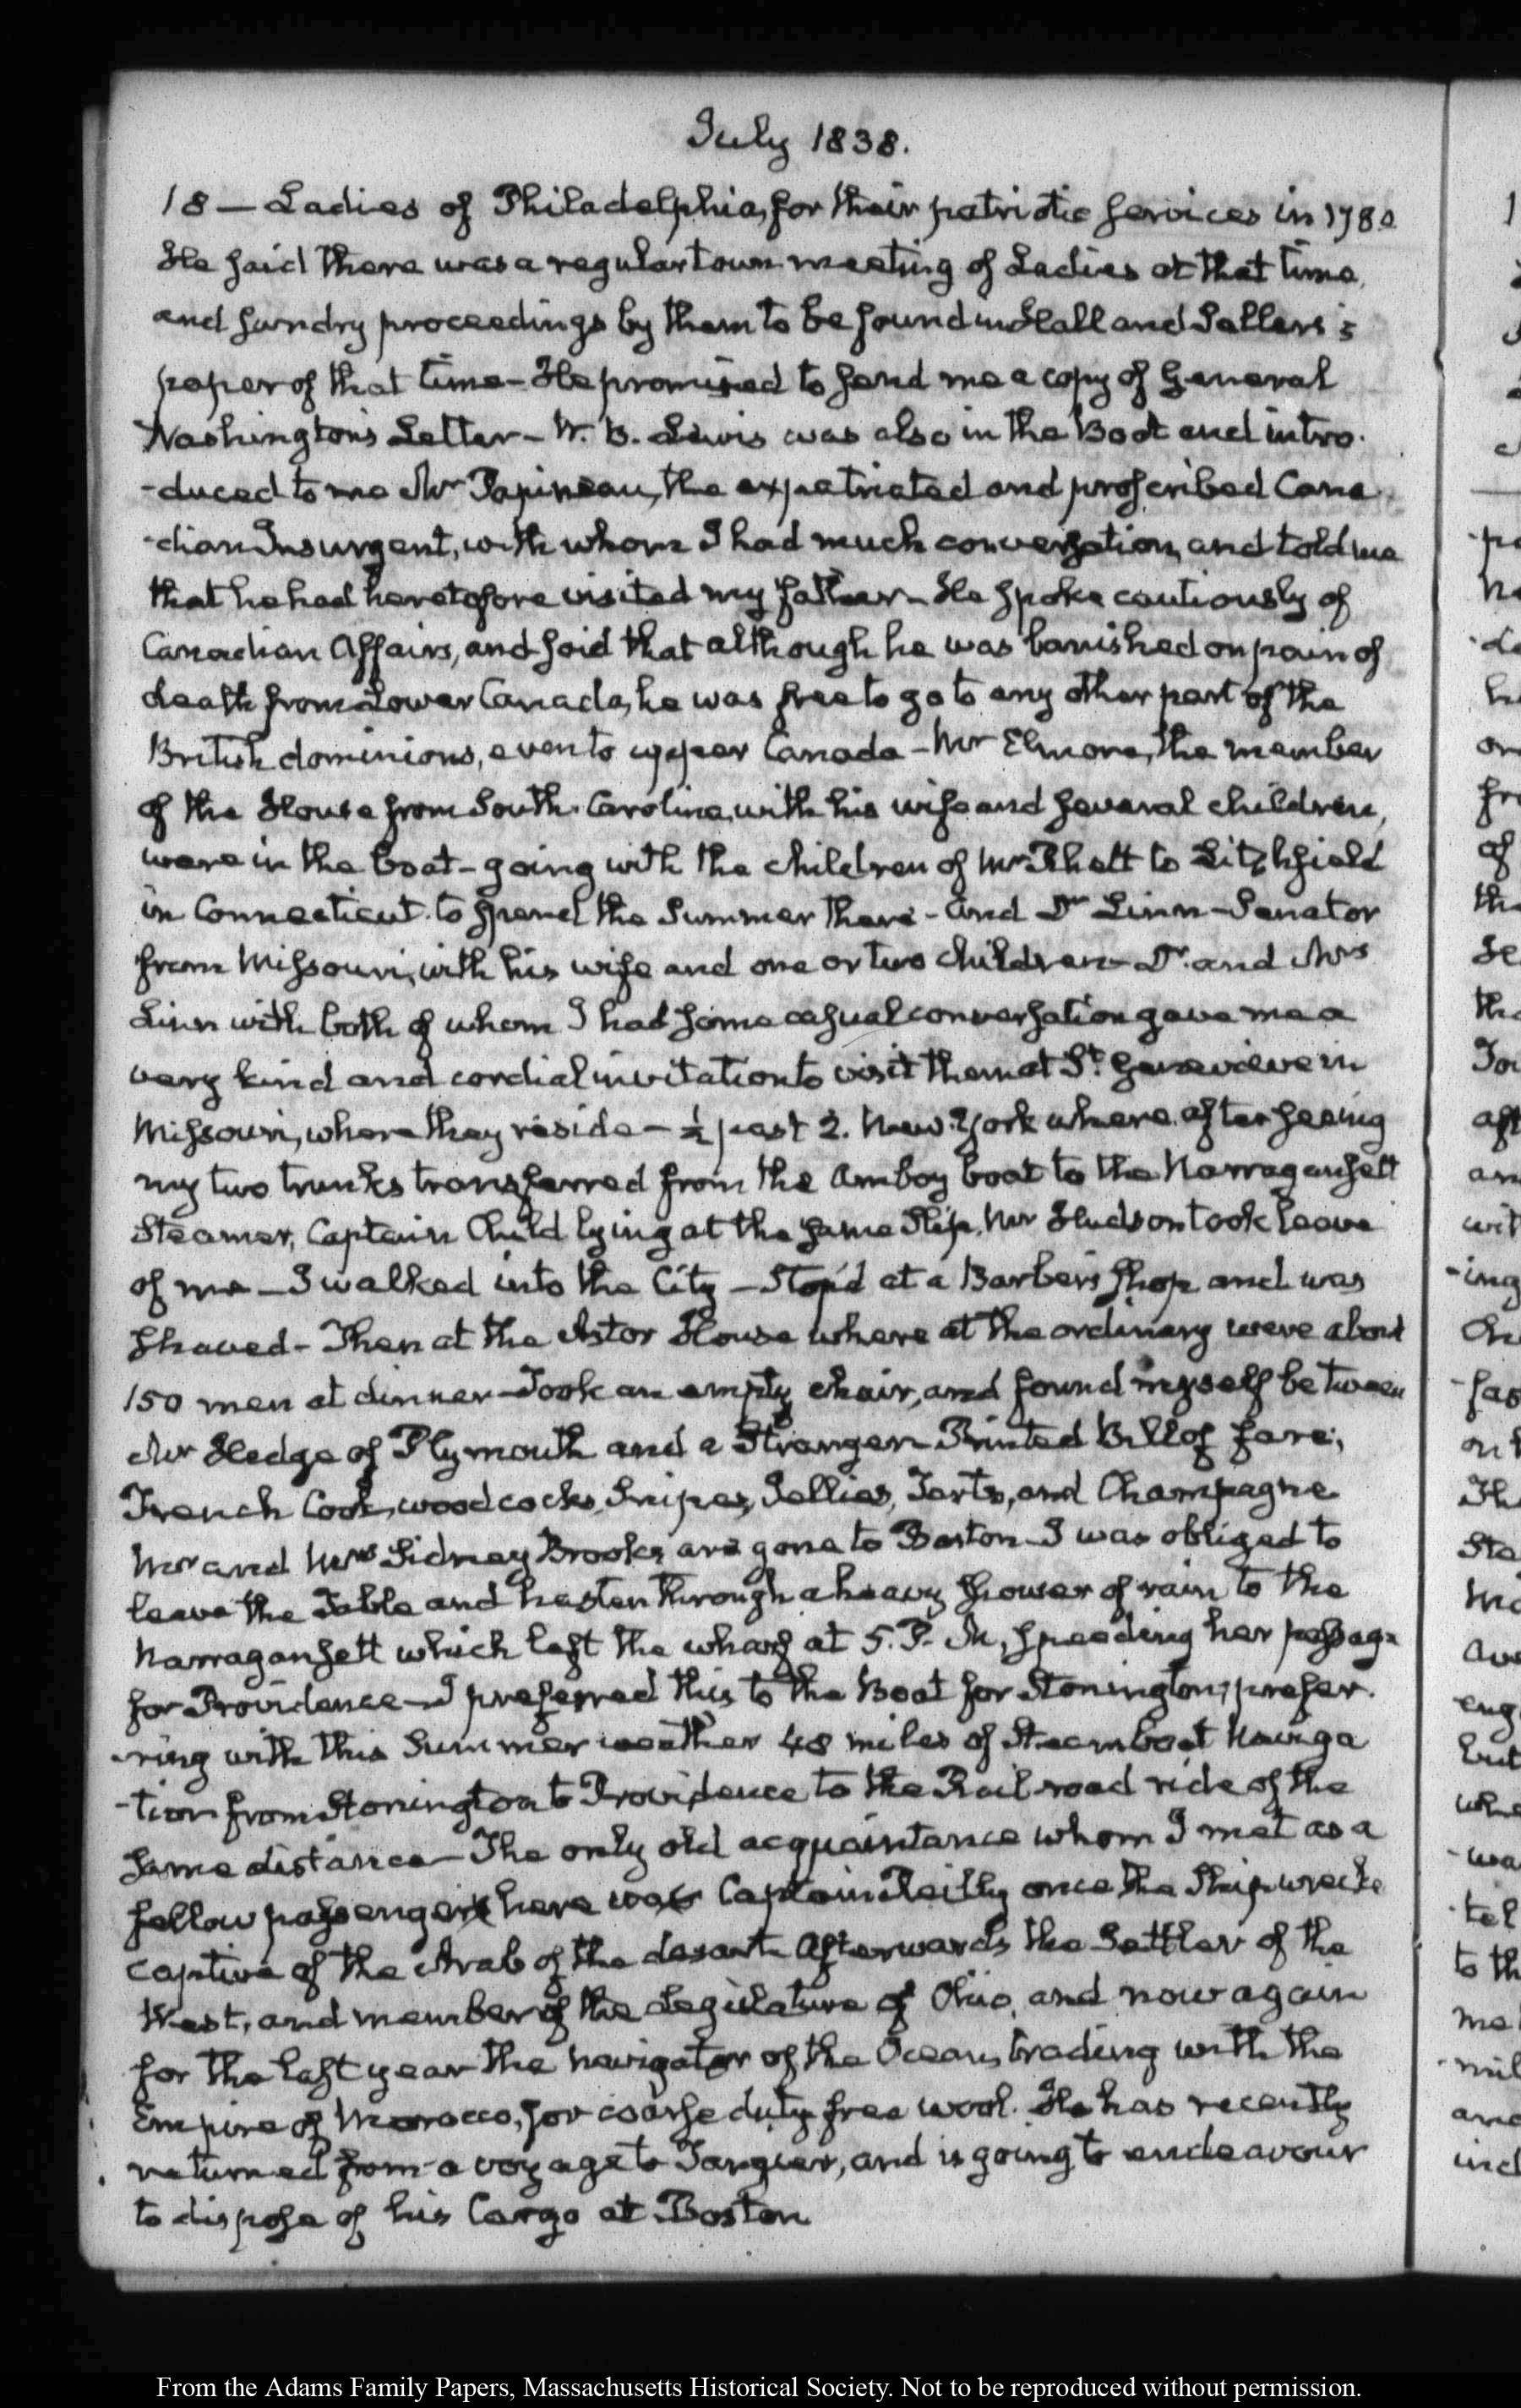 July 1838.
18 — Ladies of Philadelphia, for their patriotic services in 1780
He said there was a regular town meeting of Ladies at that time,
and sundry proceedings by them to be found in Hall and Sellers's
paper of that time — He promised to send me a copy of General
Washington's Letter — W. B. Lewis was also in the Boat and intro-
-duced to me Mr Papineau, the expatriated and proscribed Cana
-dian Insurgent, with whom I had much conversation, and told me
that he had heretofore visited my father — He spoke cautiously of
Canadian Affairs, and said that although he was banished on pain of
death from Lower Canada, he was free to go to any other part of the
British dominions, even to upper Canada — Mr Elmore, the member
of the House from South Carolina, with his wife and several children,
were in the boat — going with the children of Mr Rhett to Litchfield
in Connecticut to spend the Summer there — and Dr Linn — Senator
from Missouri, with his wife and one or two children — Dr and Mrs
Linn with both of whom I had some casual conversation gave me a
very kind and cordial invitation to visit them at St Genevieve in
Missouri, where they reside — ½ past 2. New-York where after seeing
my two trunks transferred from the Amboy boat to the Narragansett
Steamer, Captain Child lying at the same Slip, Mr Hudson took leave
of me — I walked into the City — Stop'd at a Barber's shop and was
shaved — Then at the Astor House where at the ordinary were about
150 men at dinner — Took an empty chair, and found myself between
Mr Hedge of Plymouth and a Stranger — Printed Bill of fare;
French Cook, woodcocks, Snipes, Jellies, Tarts, and Champagne
Mr and Mrs Sidney Brooks are gone to Boston — I was obliged to
leave the Table and hasten through a heavy shower of rain to the
Narragansett which left the wharf at 5. P. M, speeding her passage
for Providence — I preferred this to the Boat for Stonington, prefer-
-ring with this Summer weather 48 miles of Steamboat Naviga
-tion from Stonington to Providence to the Rail-road ride of the
same distance — The only old acquaintance whom I met as a
fellow passenger here was Captain Reilly once the Shipwreck
captive of the Arab of the desart — Afterwards the Settler of the
West, and member of the Legislature of Ohio, and now again
for the last year the Navigator of the Ocean, trading with the
Empire of Morocco, for coarse duty free wool. He has recently
returned from a voyage to Tangier, and is going to endeavour
to dispose of his Cargo at Boston
From the Adams Family Papers, Massachusetts Historical Society. Not to be reproduced without permission.